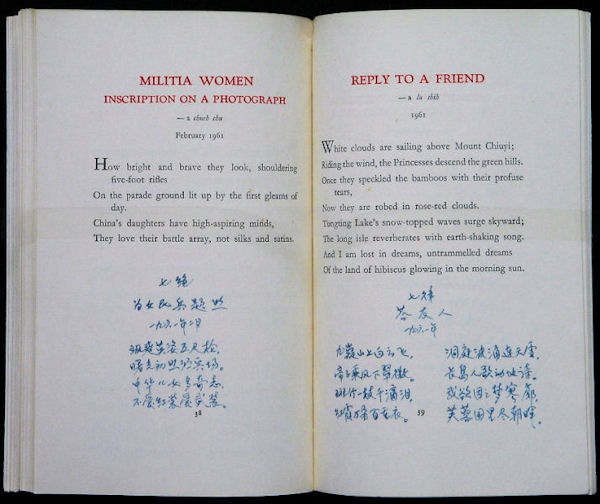 MILITIA WOMEN
INSCRIPTION ON A PHOTOGRAPH
— a chueh chu
February 1961
How bright and brave they look, shouldering
five-foot rifles
On the parade ground lit up by the first gleams of
day.
China's daughters have high-aspiring minds,
They love their battle array, not silks and satins.
七绝
为女民兵题照
一九六一年二月
飒爽英姿五尺枪,
曙光初照演兵场。
中华儿女多奇志,
不爱红装爱武装。
38
REPLY TO A FRIEND
— a lu shih
1961
White clouds are sailing above Mount Chiuyi;
Riding the wind, the Princesses descend the green hills.
Once they speckled the bamboos with their profuse
tears,
Now they are robed in rose-red clouds.
Tungting Lake's snow-topped waves surge skyward;
The long isle reverberates with earth-shaking song.
And I am lost in dreams, untrammelled dreams
Of the land of hibiscus glowing in the morning sun.
七律
答友人
一九六一年
九嶷山上白云飞,
帝子乘风下翠微。
斑竹一枝千滴泪,
红霞万朵百重衣。
洞庭波涌连天雪,
长岛人歌动地诗。
我欲因之梦寥廓,
芙蓉国里尽朝晖。
39